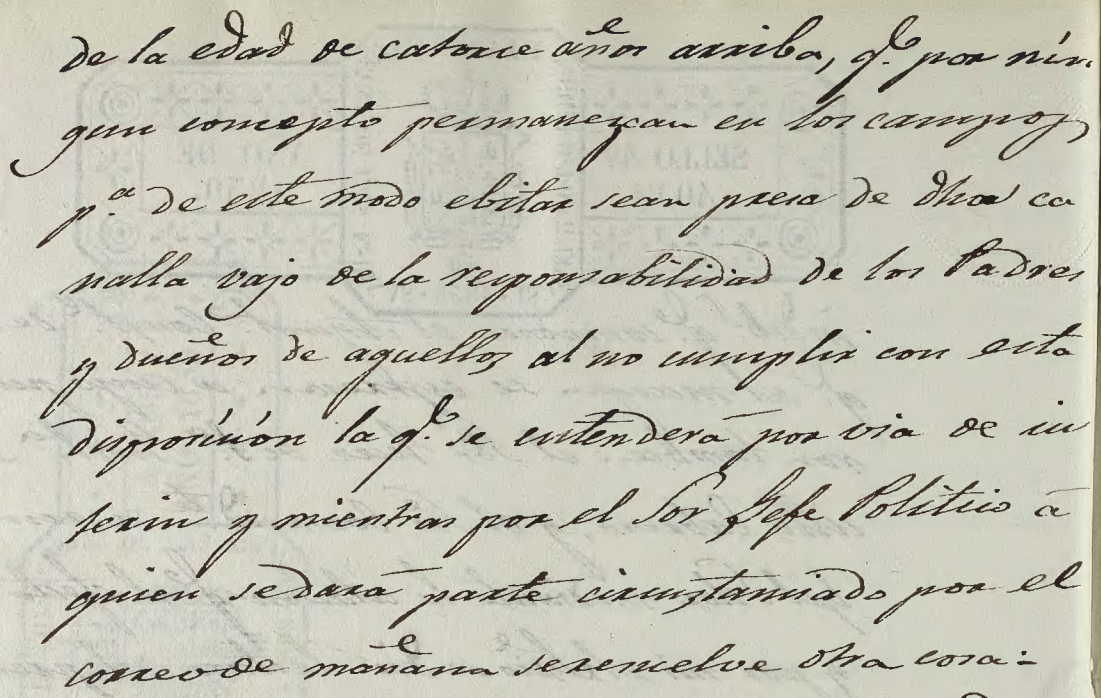 de la edad de catorce años arriba, q.e por nin-
gun concepto permanezcan en los campos,
p.a de este modo ebitar sean presa de dha ca
nalla vajo de la responsabilidad de los Padres
y dueños de aquellos, al no cumplir con esta
disposición la q.e se entenderá por via de in
terin y mientras por el Sor Gefe Politico á
quien sedará parte circunstanciado por el
correo de mañana seresuelve otra cosa=